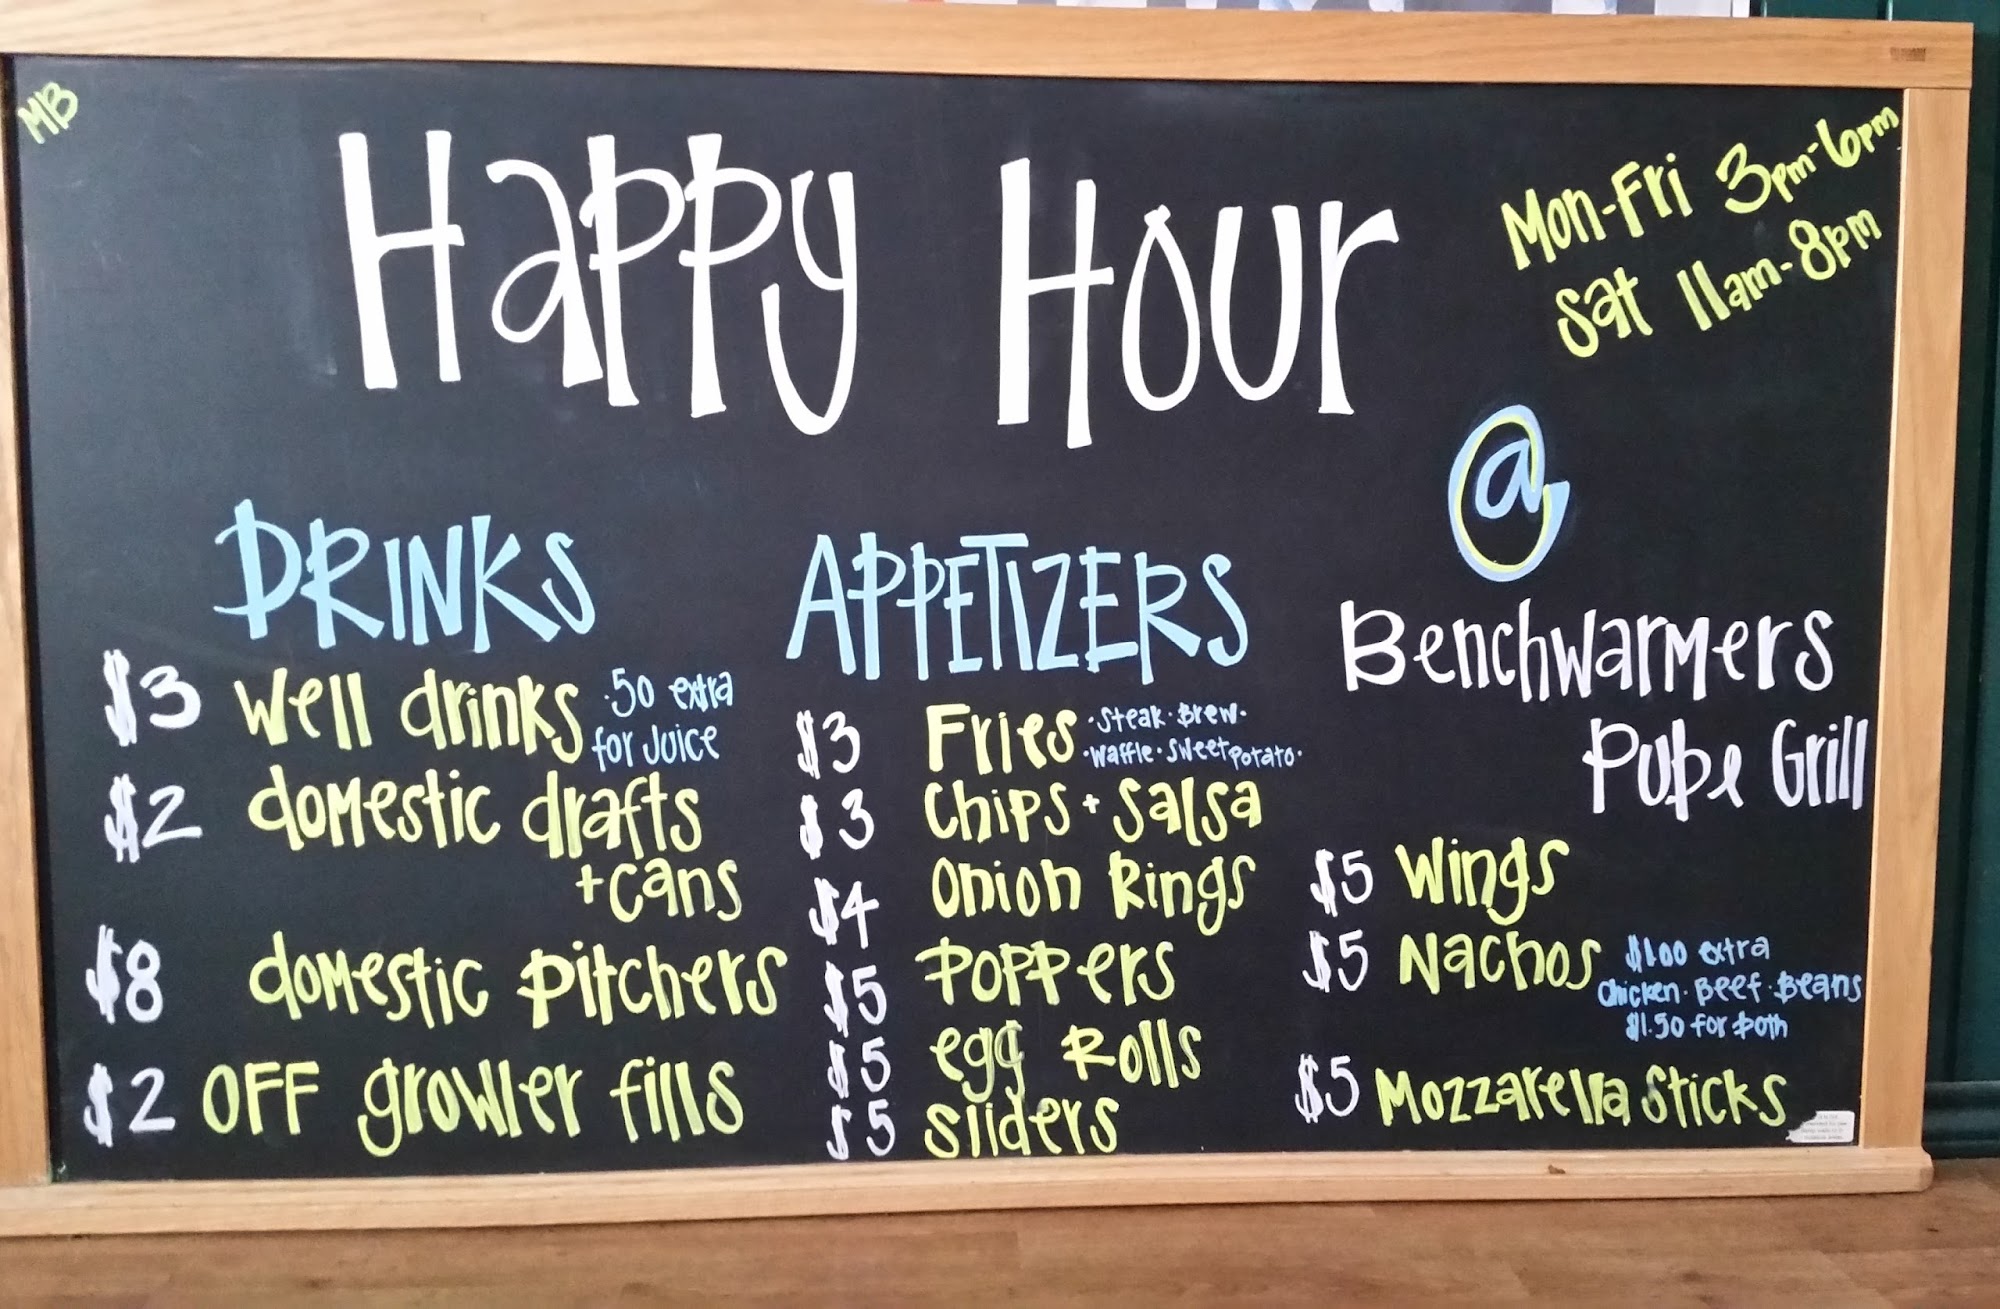 MB
Happy Hour
Mon-Fri 3pm-6pm
Sat 11am-8pm
@
Benchwarmers
Pub & Grill
DRINKS
$3 Well drinks .50 extra
for Juice
$2 domestic drafts
+ cans
$8 domestic pitchers
$2 OFF growler fills
APPETIZERS
$3 Fries ·Steak·Brew·
·Waffle·Sweet potato·
$3 Chips + Salsa
$4 Onion Rings
$5 Poppers
$5 egg Rolls
$5 Sliders
$5 Wings
$5 Nachos $1.00 extra
Chicken·Beef·Beans
$1.50 for both
$5 Mozzarella Sticks